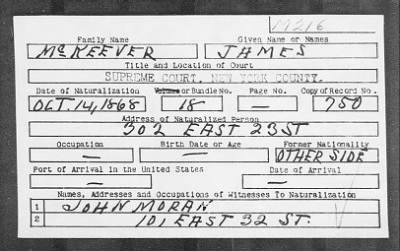 17316
Family Name Given Name or Names
McKEEVER JAMES
Title and Location of Court
SUPREME COURT, NEW YORK COUNTY.
Date of Naturalization Volume or Bundle No. Page No. Copy of Record No.
OCT. 14, 1868 18 — 750
Address of Naturalized Person
302 EAST 23 ST
Occupation Birth Date or Age Former Nationality
— — OTHER SIDE
Port of Arrival in the United States Date of Arrival
— —
Names, Addresses and Occupations of Witnesses To Naturalization
1 JOHN MORAN
2 101 EAST 32 ST.